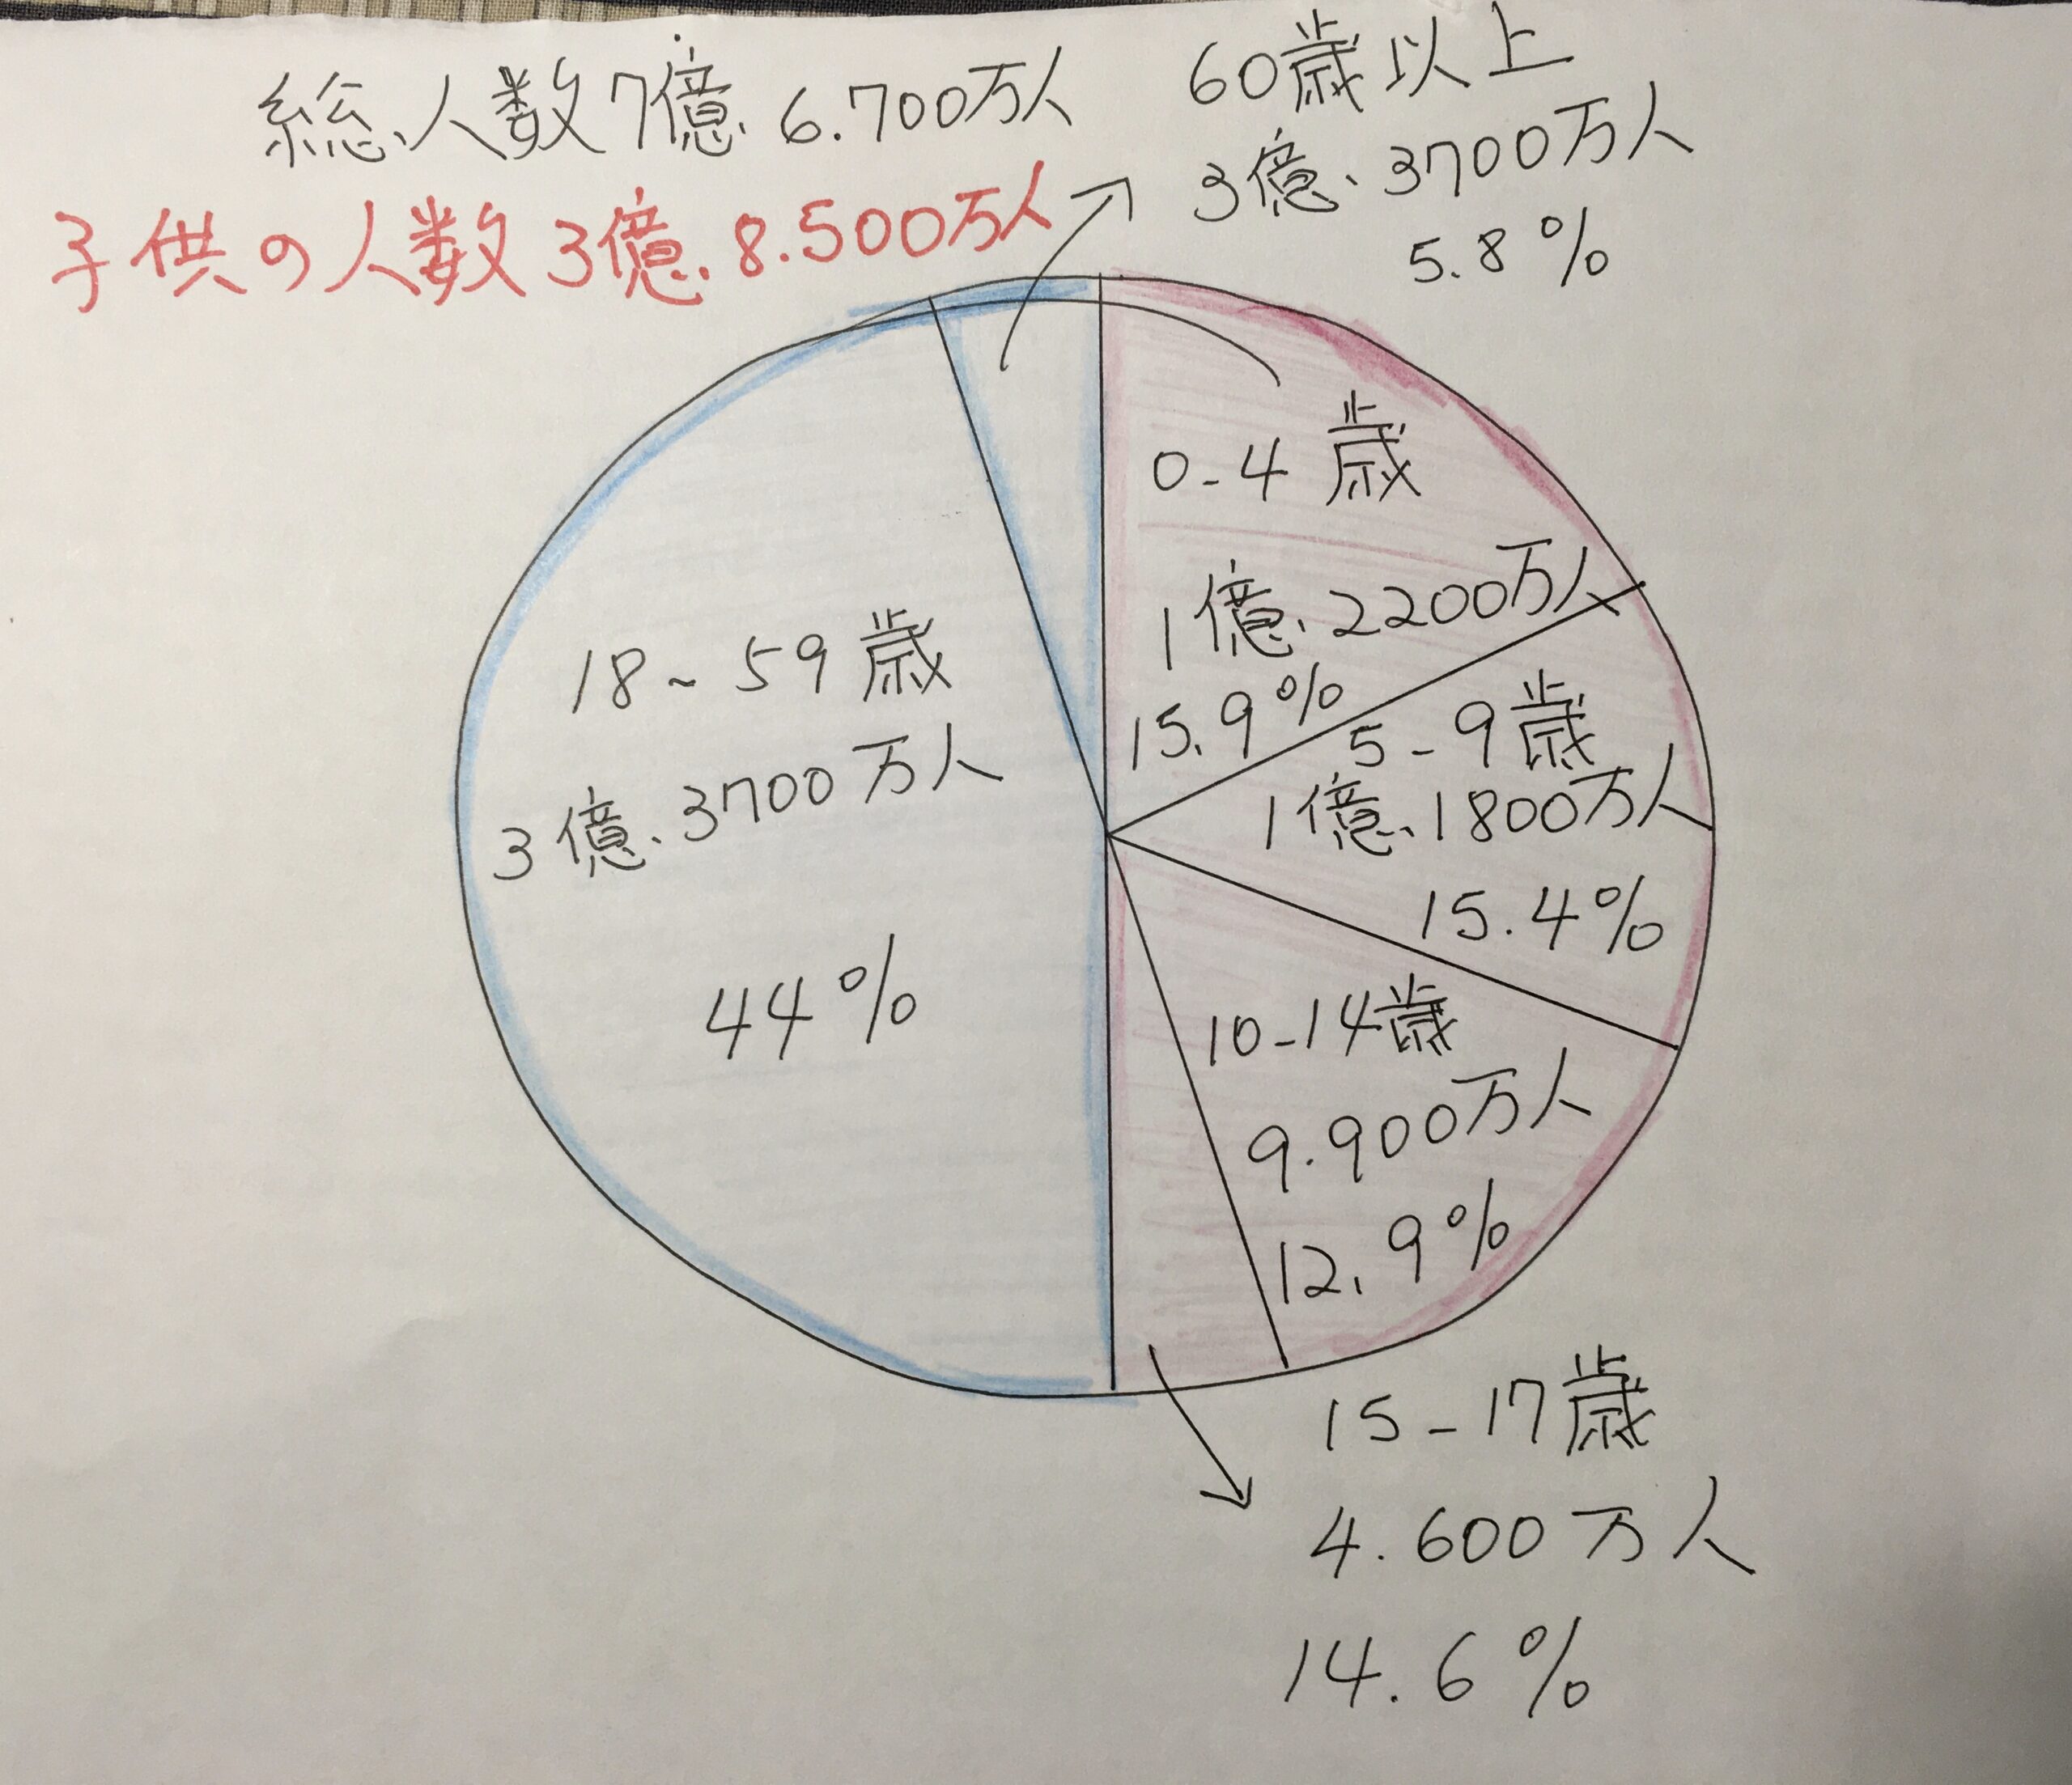 総人数7億.6.700万人
子供の人数3億.8.500万人
60歳以上
3億、3700万人
5.8%
0-4歳
1億、2200万人
15.9%
5-9歳
1億、1800万人
15.4%
10-14歳
9.900万人
12.9%
15-17歳
4.600万人
14.6%
18~59歳
3億、3700万人
44%